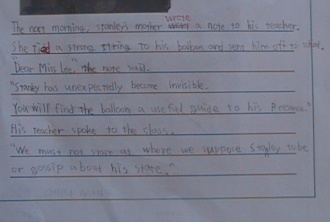 The next morning, Stanley's mother wrote a note to his teacher.
She tied a strong string to his balloon and sent him off to school.
"Dear Miss Lee," the note said.
"Stanley has unexpectedly become invisible.
You will find the balloon a useful guide to his presence."
His teacher spoke to the class.
"We must not stare at where we suppose Stanley to be
or gossip about his state."